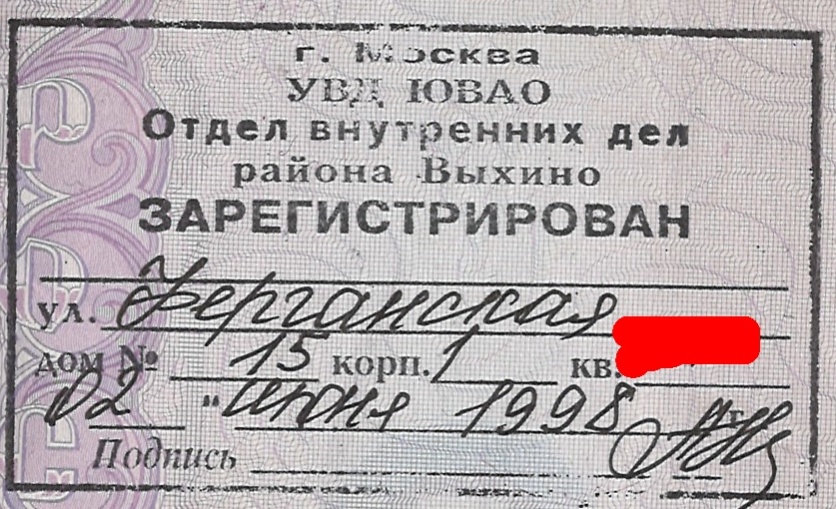 г. Москва
УВД ЮВАО
Отдел внутренних дел
района Выхино
ЗАРЕГИСТРИРОВАН
ул. Ферганская
дом № 15 корп. 1 кв.
02 " июня 1998 г.
Подпись